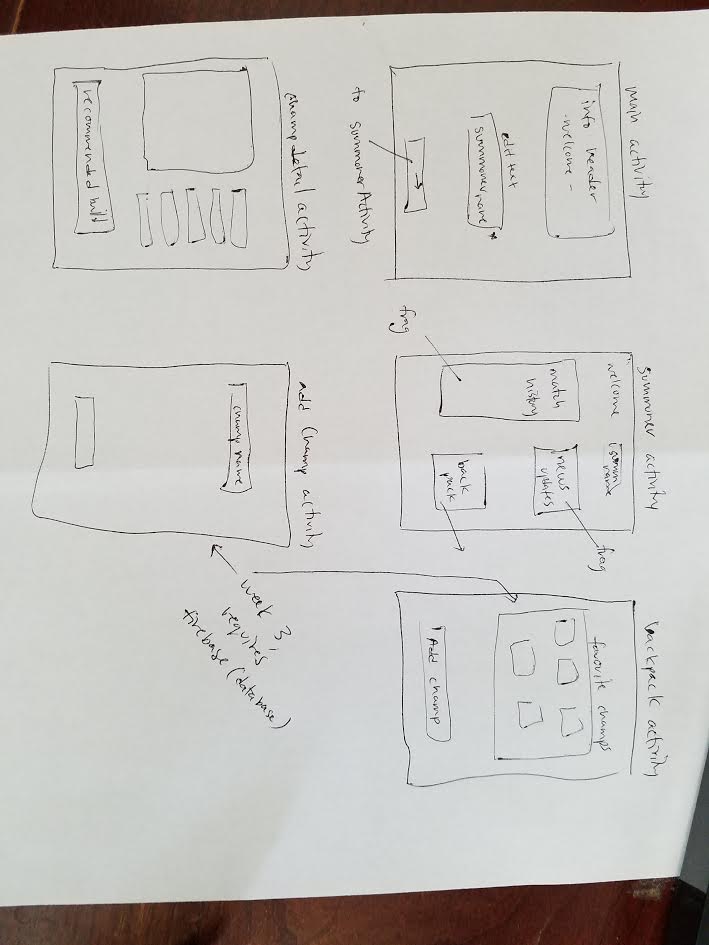 main activity
info header
-welcome-
edit text
summoner name*
to summonerActivity
summoner activity
welcome
summ
name
match
history
news
updates
back
pack
frag
frag
backpack activity
favorite champs
Add champ
champ detail activity
recommended build
add Champ activity
champ name
week 3,
requires
firebase (database)